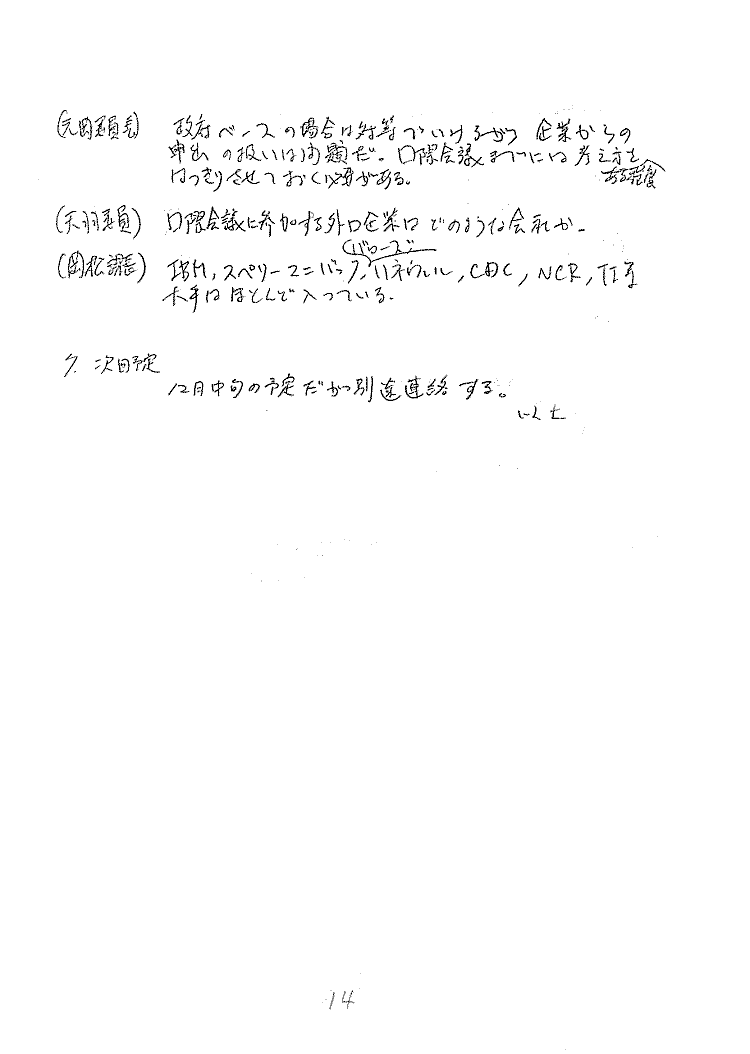 (元岡委員長) 政府ベースの場合は対等でいけるが、企業からの
申出の扱いは問題だ。国際会議までには考え方を
ある程度
はっきりさせておく必要がある。
(天羽委員) 国際会議に参加する外国企業はどのような会社か。
(バローズ)
(岡松課長) IBM, スペリーユニバック, ハネウェル, CDC, NCR, TI等
大手はほとんど入っている。
7. 次回予定
12月中旬の予定だが別途連絡する。
以上
14